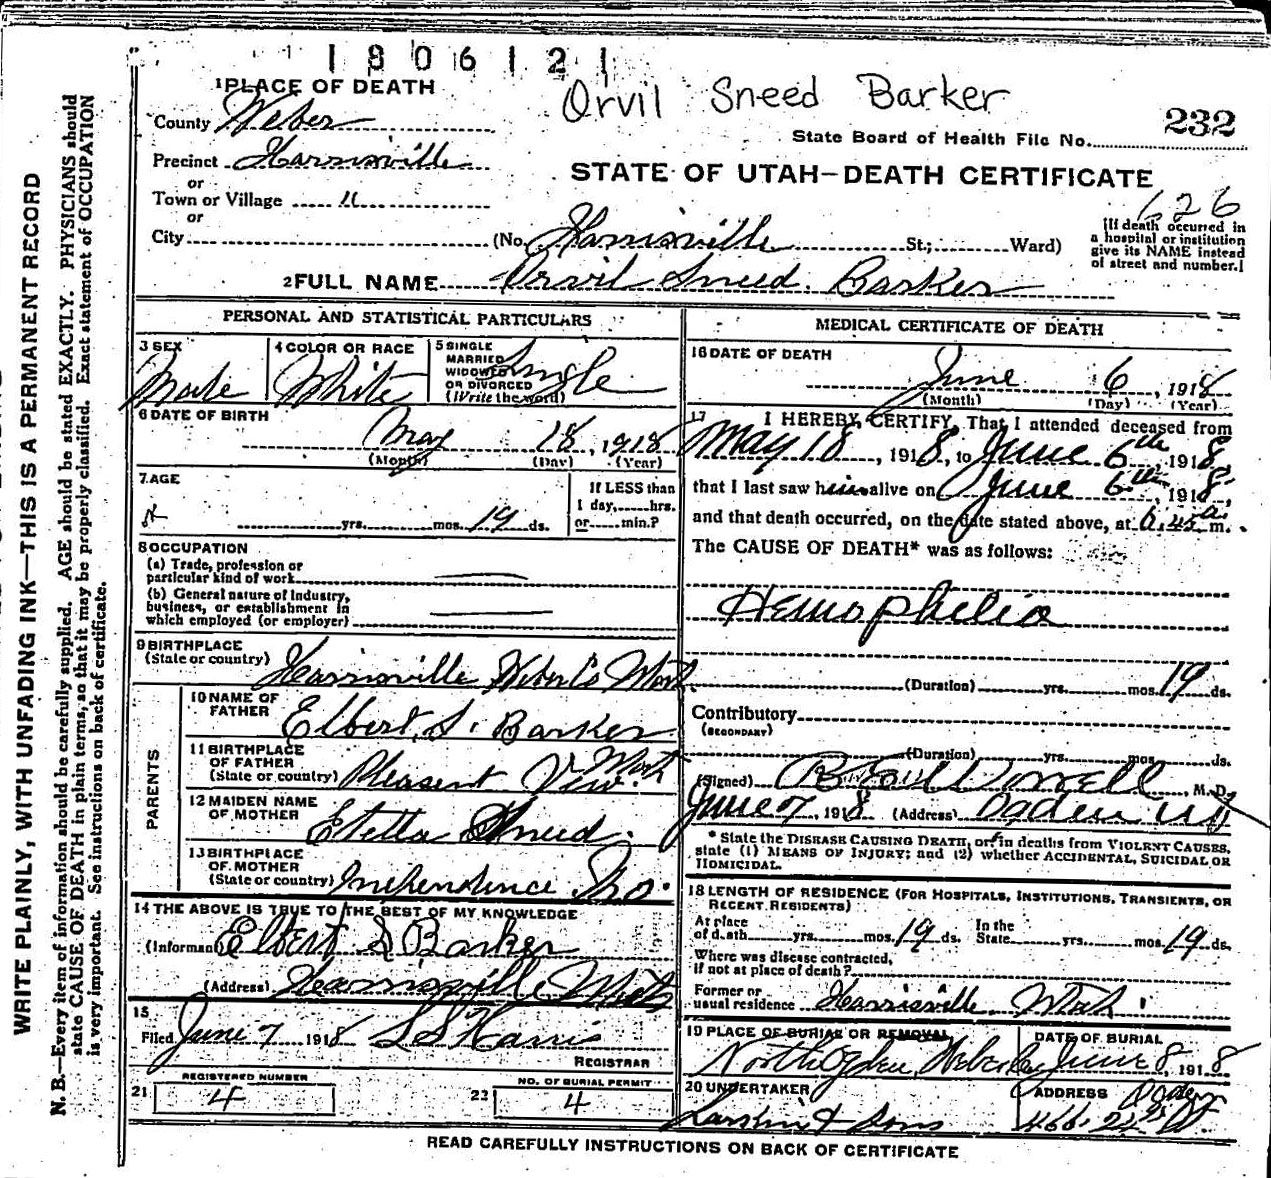 1806121
Orvil Sneed Barker
1 PLACE OF DEATH
County Weber
State Board of Health File No. 232
Precinct Harrisville
or
STATE OF UTAH—DEATH CERTIFICATE
Town or Village "
or
626
City (No. Harrisville St.; Ward)
[If death occurred in
a hospital or institution
give its NAME instead
of street and number.]
2 FULL NAME Orvil Sneed Barker
PERSONAL AND STATISTICAL PARTICULARS
3 SEX
Male
4 COLOR OR RACE
White
5 SINGLE
MARRIED
WIDOWED
OR DIVORCED
(Write the word)
Single
6 DATE OF BIRTH
May 18, 1918
(Month) (Day) (Year)
7 AGE
yrs. mos. 19 ds.
If LESS than
1 day, hrs.
or min.?
8 OCCUPATION
(a) Trade, profession or
particular kind of work
(b) General nature of Industry,
business, or establishment in
which employed (or employer)
9 BIRTHPLACE
(State or country) Harrisville Weber Co Utah
PARENTS
10 NAME OF
FATHER
Elbert S. Barker
11 BIRTHPLACE
OF FATHER
(State or country) Pleasent View Utah
12 MAIDEN NAME
OF MOTHER
Etella Sneed.
13 BIRTHPLACE
OF MOTHER
(State or country) Independence Mo.
14 THE ABOVE IS TRUE TO THE BEST OF MY KNOWLEDGE
(Informant) Elbert S Barker
(Address) Harrisville Utah
15
Filed June 7 1918 L S Harris
REGISTRAR
REGISTERED NUMBER
21 4
NO. OF BURIAL PERMIT
22 4
MEDICAL CERTIFICATE OF DEATH
16 DATE OF DEATH
June 6, 1918
(Month) (Day) (Year)
17 I HEREBY CERTIFY, That I attended deceased from
May 18, 1918, to June 6th, 1918,
that I last saw him alive on June 6th, 1918,
and that death occurred, on the date stated above, at 6.45 a m.
The CAUSE OF DEATH* was as follows:
Hemophelia
(Duration) yrs. mos. 19 ds.
Contributory
(SECONDARY)
(Duration) yrs. mos. ds.
(Signed) M. D.
June 7, 1918 (Address) Ogden
* State the DISEASE CAUSING DEATH, or, in deaths from VIOLENT CAUSES,
state (1) MEANS OF INJURY; and (2) whether ACCIDENTAL, SUICIDAL OR
HOMICIDAL.
18 LENGTH OF RESIDENCE (FOR HOSPITALS, INSTITUTIONS, TRANSIENTS, OR
RECENT RESIDENTS)
At place
of death yrs. mos. 19 ds. In the
State yrs. mos. 19 ds.
Where was disease contracted,
if not at place of death?
Former or
usual residence Harrisville, Utah
19 PLACE OF BURIAL OR REMOVAL
North Ogden, Weber Co
DATE OF BURIAL
June 8, 1918
20 UNDERTAKER
Larkin & Sons
ADDRESS Ogden
466-24 St.
READ CAREFULLY INSTRUCTIONS ON BACK OF CERTIFICATE
WRITE PLAINLY, WITH UNFADING INK—THIS IS A PERMANENT RECORD
N. B.—Every item of information should be carefully supplied. AGE should be stated EXACTLY. PHYSICIANS should
state CAUSE OF DEATH in plain terms, so that it may be properly classified. Exact statement of OCCUPATION
is very important. See instructions on back of certificate.